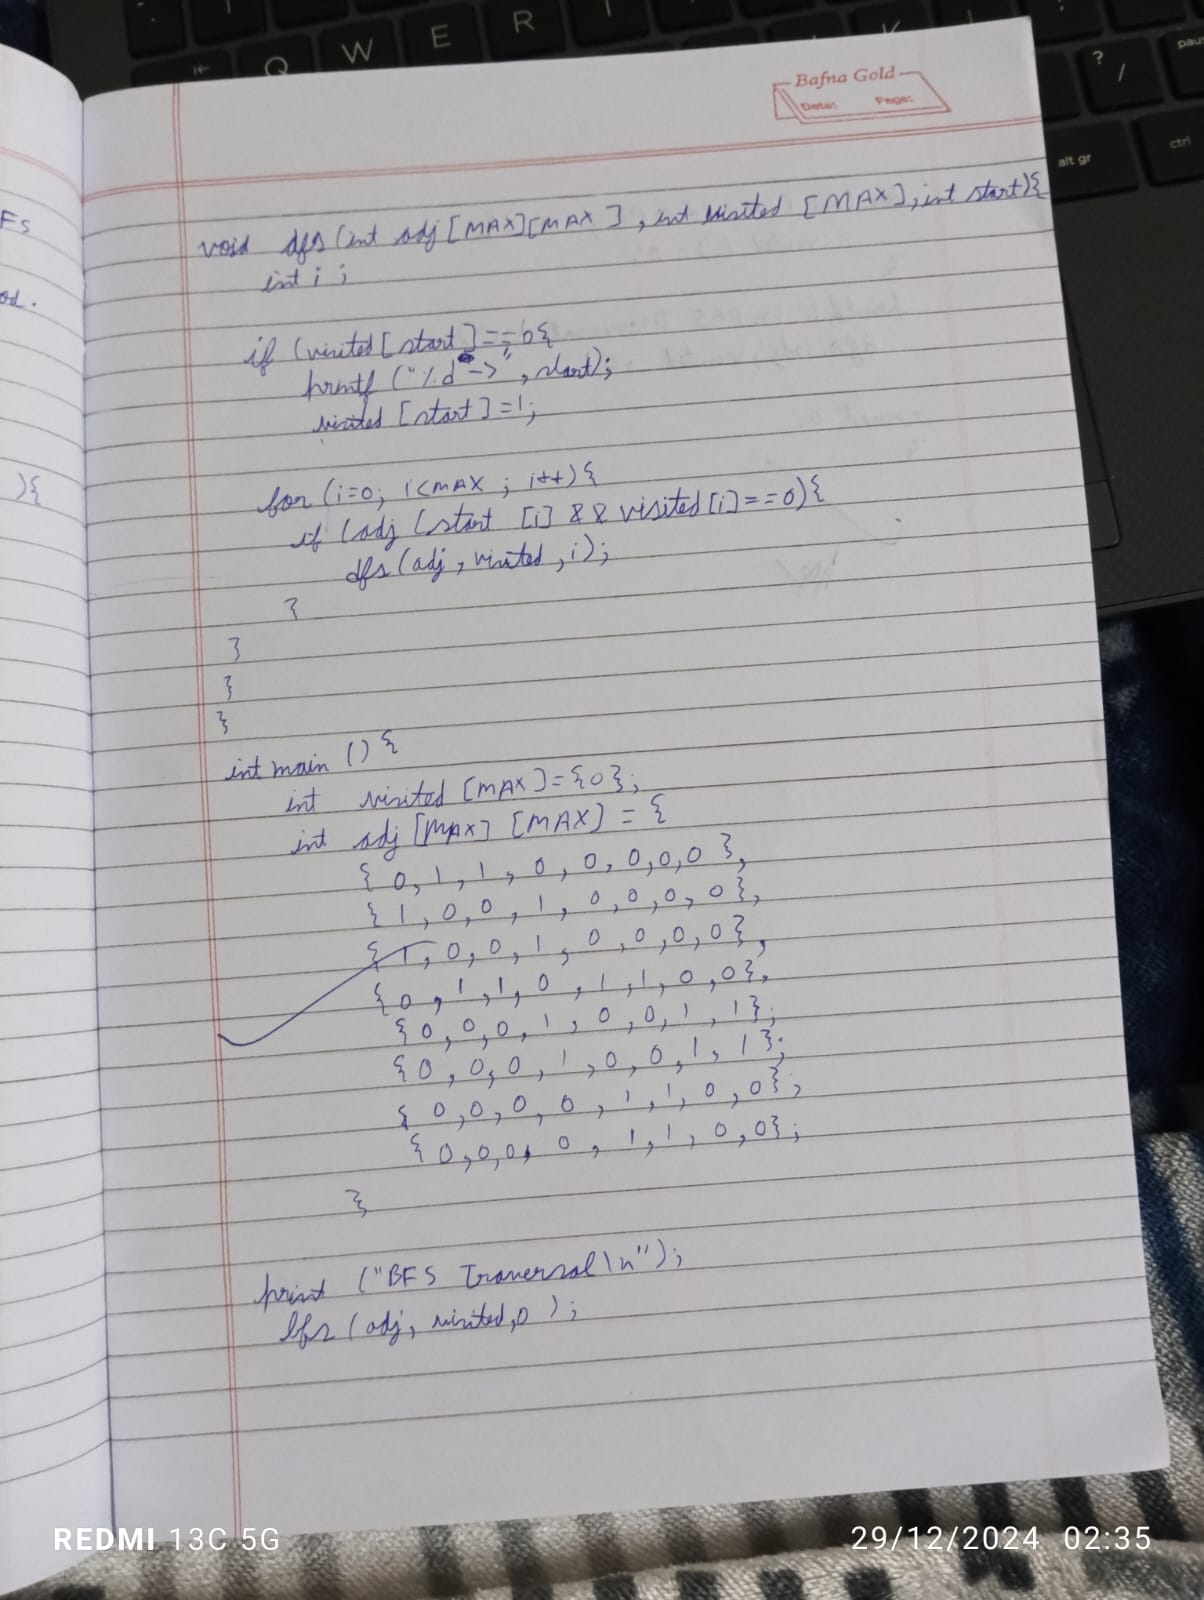 Q W E R
? /
pau
alt gr
ctrl
Bafna Gold
Date: Page:
FS
od.
){
void dfs (int adj [MAX][MAX], int visited [MAX], int start){
int i ;
if (visited [start] == 0{
printf ("%d ->", start);
visited [start] = 1;
for (i=0; i<MAX ; i++) {
if (adj [start [i] && visited [i] == 0) {
dfs (adj, visited, i);
}
}
}
}
int main () {
int visited [MAX] = {0};
int adj [MAX] [MAX] = {
{ 0, 1, 1, 0, 0, 0, 0, 0 },
{ 1, 0, 0, 1, 0, 0, 0, 0 },
{ 1, 0, 0, 1, 0, 0, 0, 0 },
{ 0, 1, 1, 0, 1, 1, 0, 0 },
{ 0, 0, 0, 1, 0, 0, 1, 1 };
{ 0, 0, 0, 1, 0, 0, 1, 1 };
{ 0, 0, 0, 0, 1, 1, 0, 0 };
{ 0, 0, 0, 0, 1, 1, 0, 0 };
}
print ("BFS Traversal \n");
bfs (adj, visited, 0 );
REDMI 13C 5G
29/12/2024 02:35